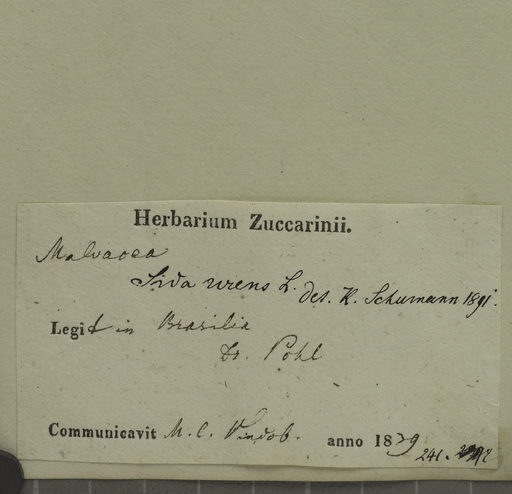 Herbarium Zuccarinii.
Malvacea
Sida urens L. det. K. Schumann 1891.
Legit in Brasilia
Dr. Pohl
Communicavit M. C. Vindob. anno 1839
241.